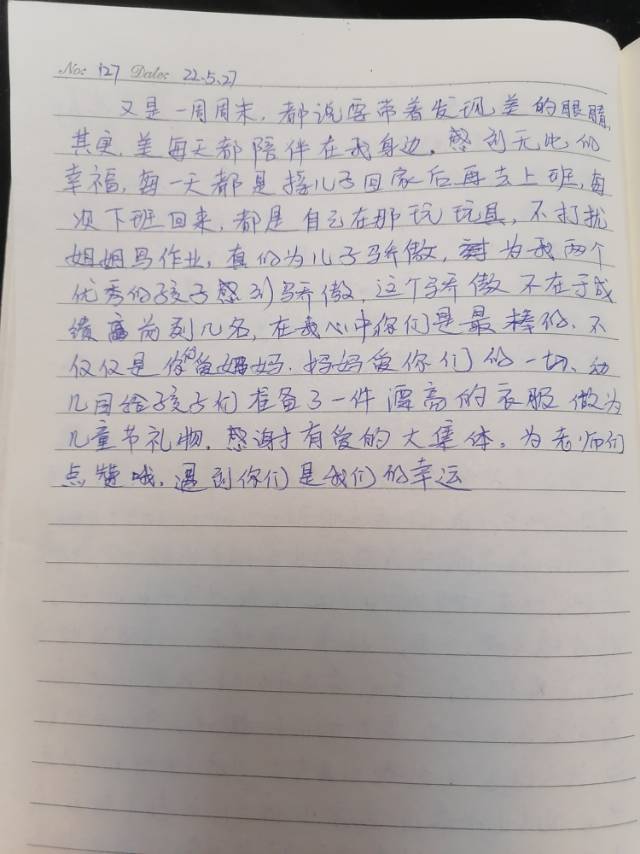 No: 127 Date: 22.5.27
又是一周周末，都说要带着发现美的眼睛，
其实，美每天都陪伴在我身边，感到无比的
幸福，每一天都是接儿子回家后再去上班，每
次下班回来，都是自己在那玩玩具，不打扰
姐姐写作业，真的为儿子骄傲，为我两个
优秀的孩子感到骄傲，这个骄傲不在于成
绩高前到几名，在我心中你们是最棒的，不
仅仅是你们爱妈妈，妈妈爱你们的一切，幼
儿园给孩子们准备了一件漂亮的衣服做为
儿童节礼物，感谢有爱的大集体，为老师们
点赞哦，遇到你们是我们的幸运